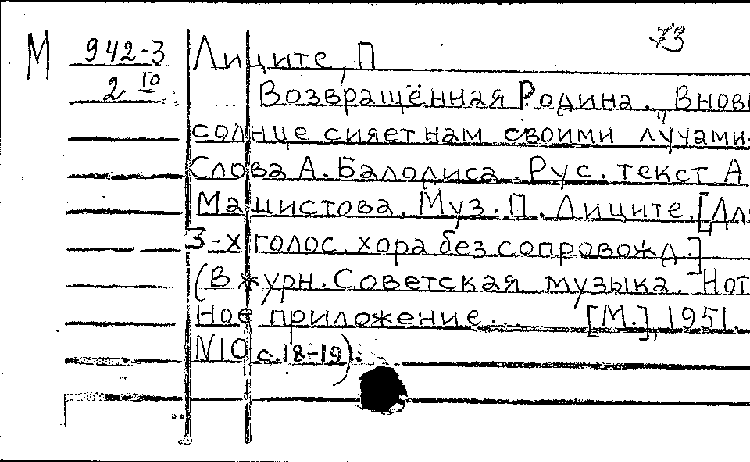 М 942-3 Лиците, П 73
2 10 Возвращённая Родина. „Вновь
солнце сияет нам своими лучами."
Слова А. Балодиса. Рус. текст А.
Машистова. Муз. П. Лиците. [Для
3-х голос. хора без сопровожд.]
(В журн. Советская музыка. Нот-
ное приложение. [М.], 1951.
N10 с. 18-19).